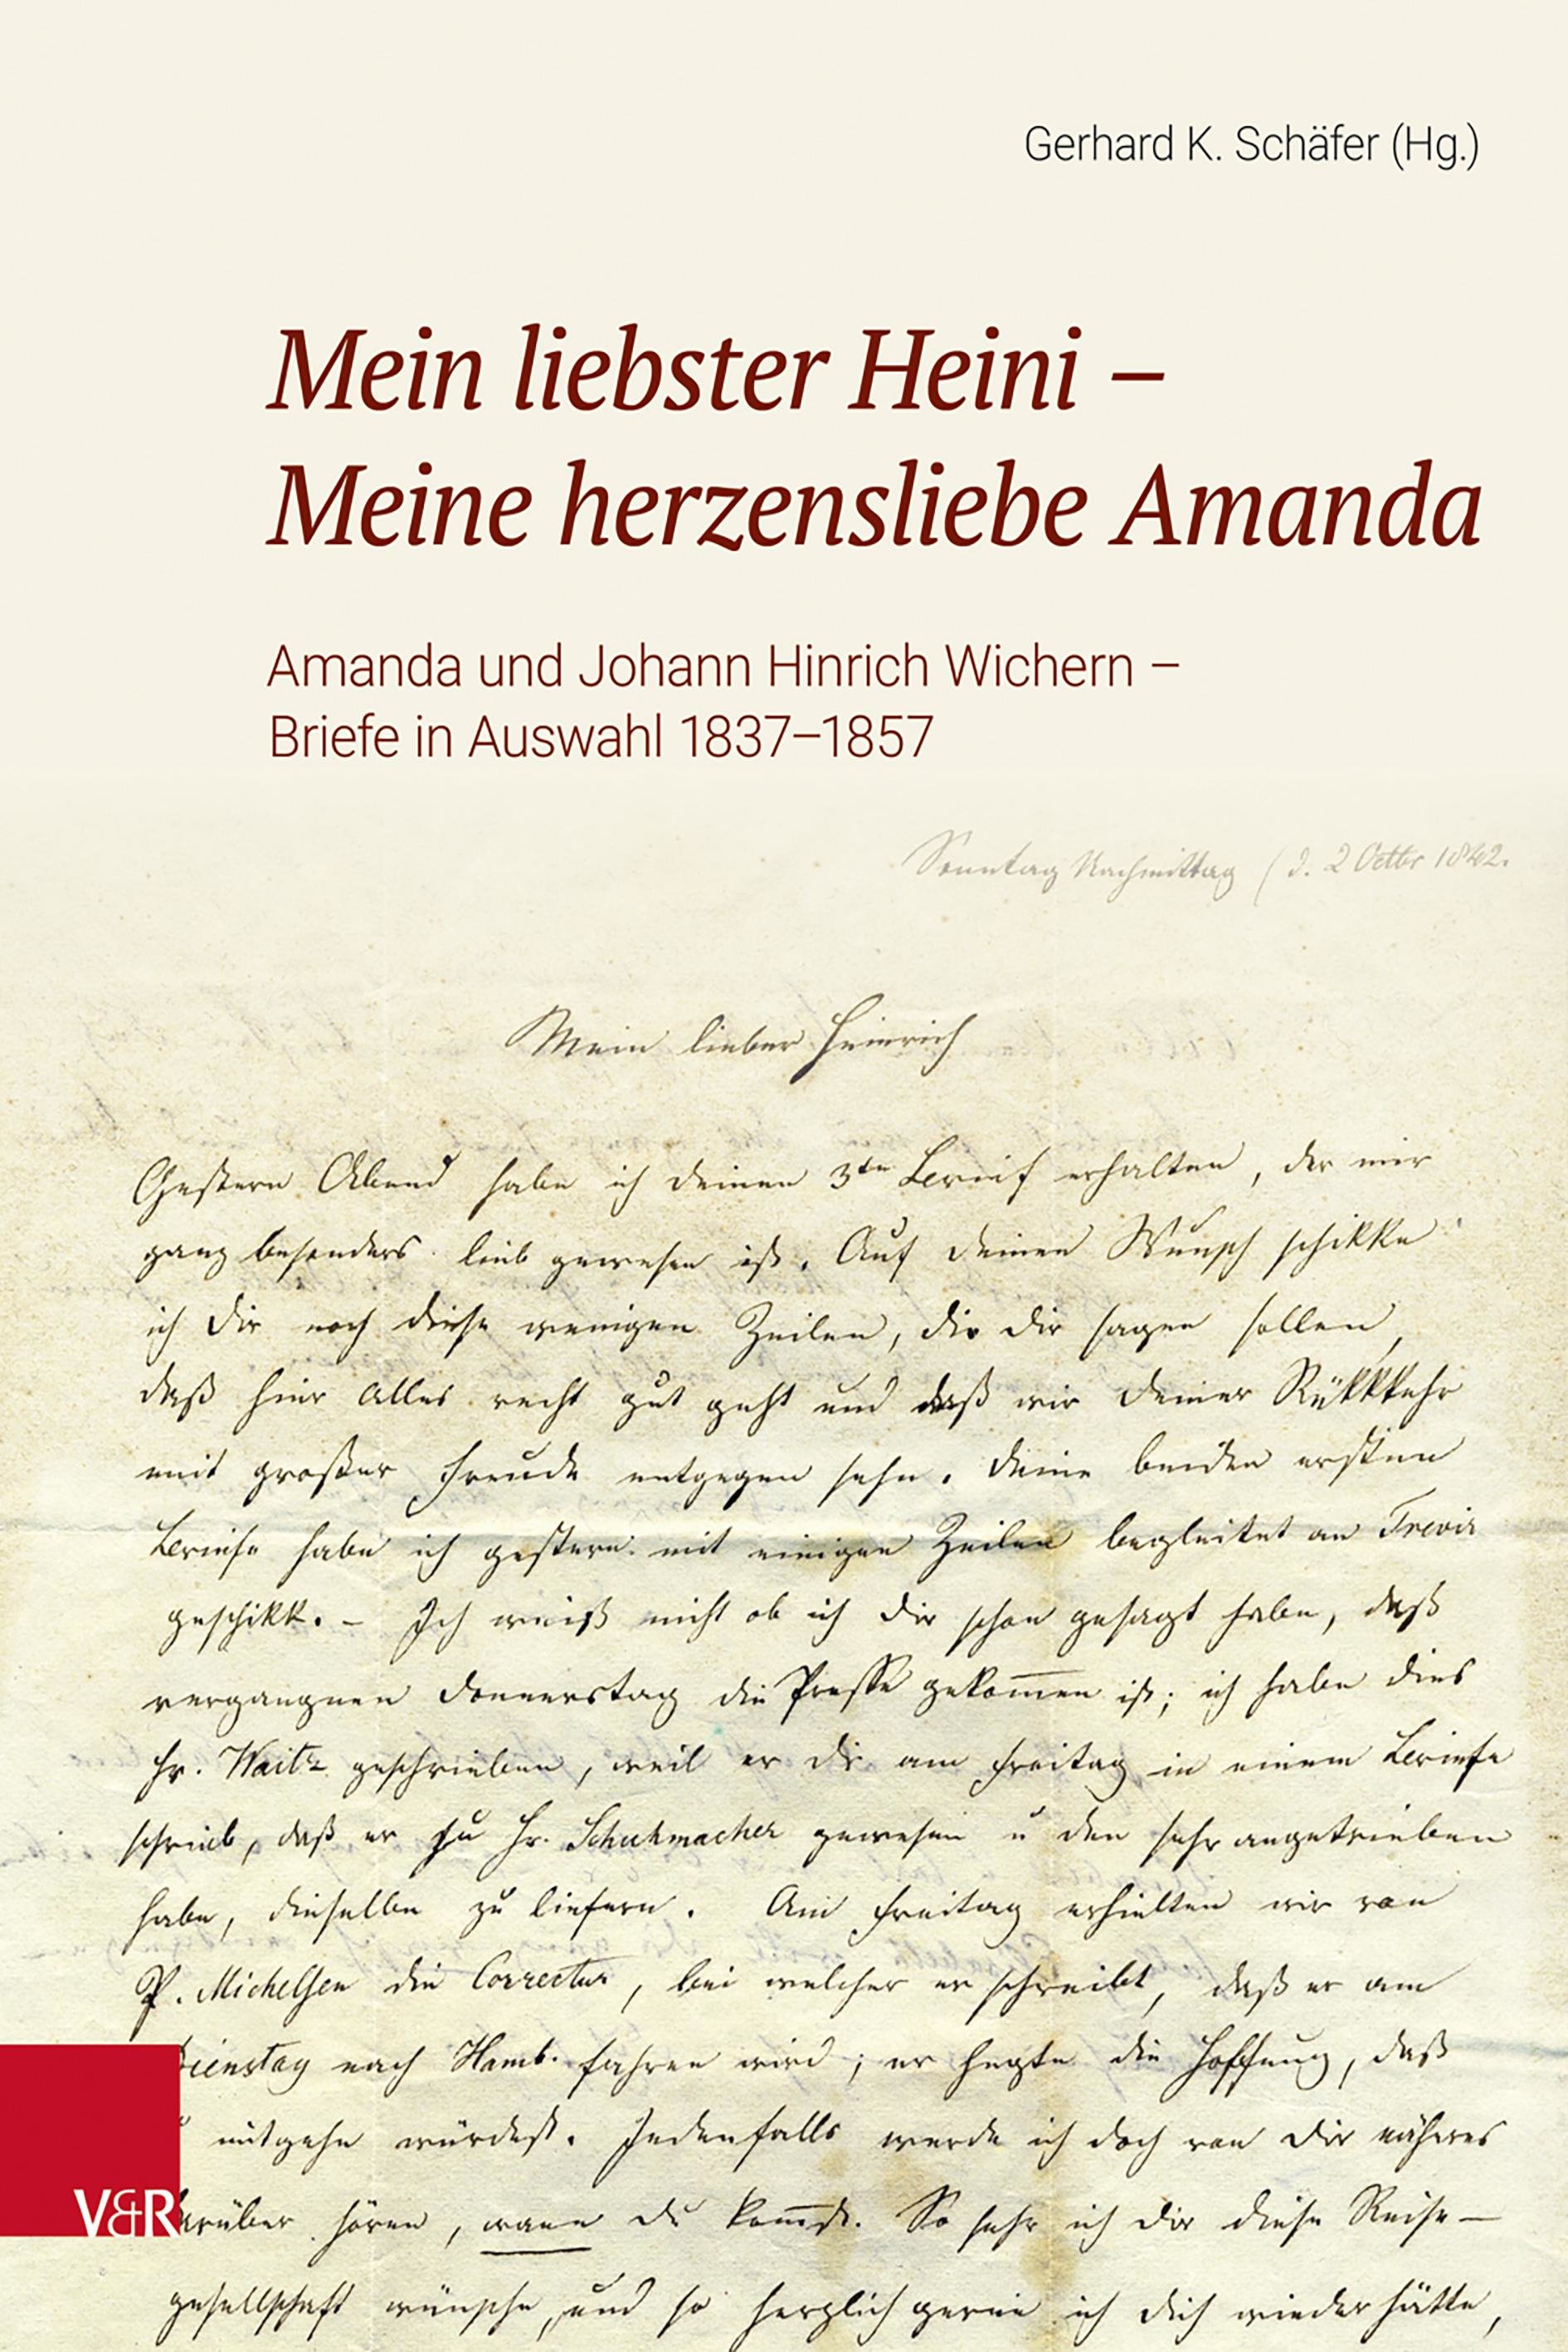 Gerhard K. Schäfer (Hg.)
Mein liebster Heini –
Meine herzensliebe Amanda
Amanda und Johann Hinrich Wichern –
Briefe in Auswahl 1837–1857
Sonntag Nachmittag (d. 2 Octbr 1842.
Mein lieber Heinrich
Gestern Abend habe ich deinen 3ten Brief erhalten, der mir
ganz besonders lieb gewesen ist. Auf deinen Wunsch schikke
ich dir noch diese wenigen Zeilen, die dir sagen sollen,
daß hier Alles recht gut geht und daß wir deiner Rükkkehr
mit großer Freude entgegen sehn. Deine beiden ersten
Briefe habe ich gestern mit einigen Zeilen begleitet an
geschikk. – Ich weiß nicht ob ich dir schon gesagt habe, daß
vergangnen Donnerstag die Presse gekom̅en ist; ich habe dies
Hr. Waitz geschrieben, weil er dir am Freitag in einem Briefe
schrieb, daß er zu Hr. Schuhmacher gewesen u den sehr angetrieben
habe, dieselbe zu liefern. Am Freitag erhielten wir von
P. Michelsen die Correctur, bei welcher er schreibt, daß er am
Dienstag nach Hamb. fahren wird; er hegte die Hoffnung, daß
mitgehn würdest. Jedenfalls werde ich doch von dir näheres
darüber hören, wann du kom̅st. So sehr ich dir diese Reise-
gesellschaft wünsche, und so herzlich gerne ich dich wieder hätte,
V&R